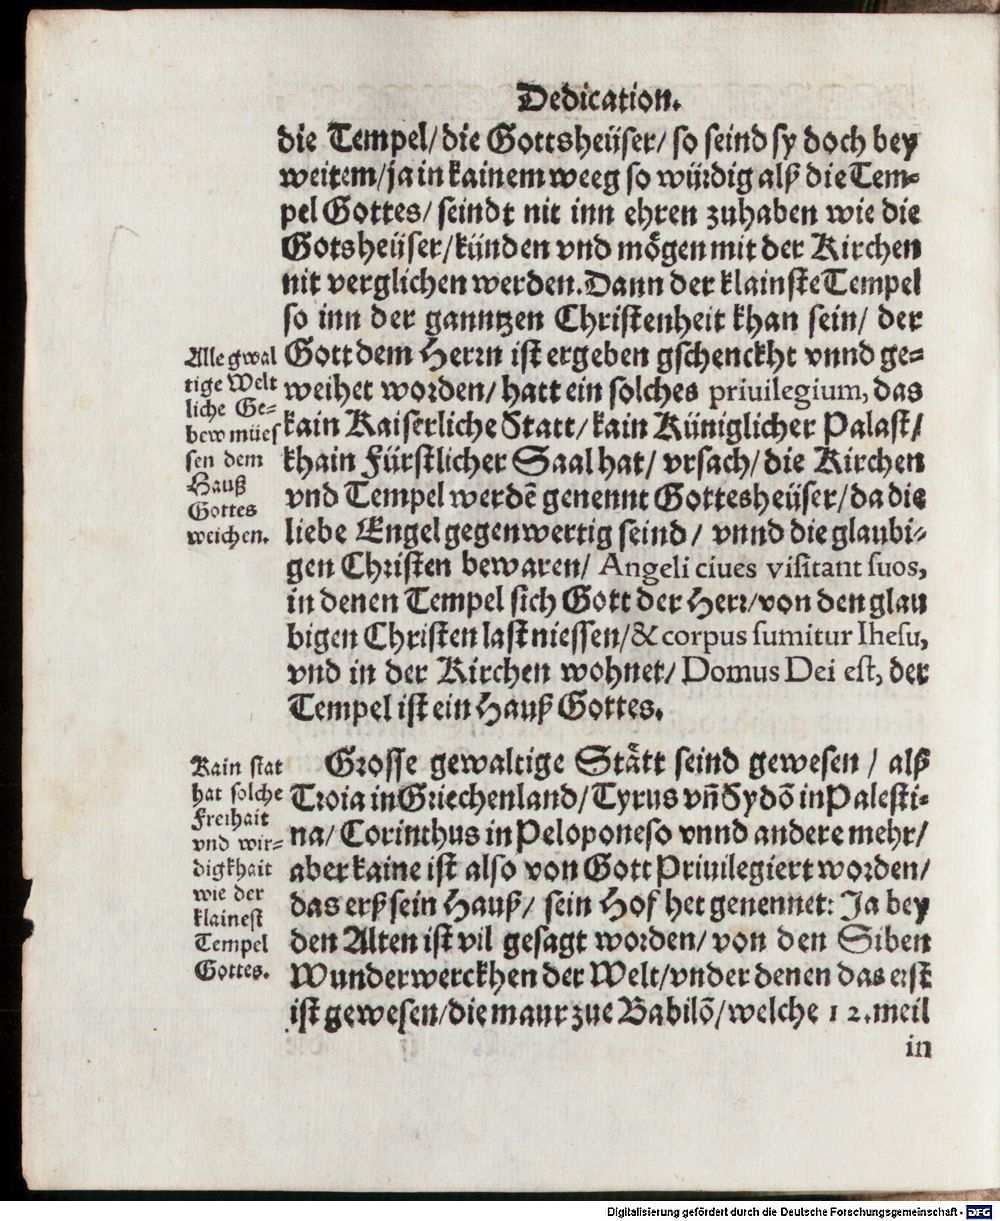 Dedication.
die Tempel/die Gottsheüser/ so seind sy doch bey
weitem/ja in kainem weeg so würdig alß die Tem-
pel Gottes/ seindt nit inn ehren zuhaben wie die
Gotsheüser/künden vnd mögen mit der Kirchen
nit verglichen werden. Dann der klainste Tempel
so inn der ganntzen Christenheit khan sein/ der
Gott dem Herrn ist ergeben gschenckht vnnd ge-
weihet worden/ hatt ein solches priuilegium, das
kain Kaiserliche Statt/ kain Küniglicher Palast/
khain Fürstlicher Saal hat/ vrsach/ die Kirchen
vnd Tempel werdē genennt Gottesheüser/da die
liebe Engel gegenwertig seind/ vnnd die glaubi-
gen Christen bewaren/ Angeli ciues visitant suos,
in denen Tempel sich Gott der Herr/von den glau
bigen Christen last niessen/& corpus sumitur Ihesu,
vnd in der Kirchen wohnet/ Domus Dei est, der
Tempel ist ein Hauß Gottes.
Alle gwal
tige Welt
liche Ge-
bew mües
sen dem
Hauß
Gottes
weichen.
Grosse gewaltige Stätt seind gewesen / alß
Troia in Griechenland/Tyrus vñ Sydō in Palesti-
na/ Corinthus in Peloponeso vnnd andere mehr/
aber kaine ist also von Gott Priuilegiert worden/
das erß sein Hauß/ sein Hof het genennet: Ja bey
den Alten ist vil gesagt worden/ von den Siben
Wunderwerckhen der Welt/vnder denen das erst
ist gewesen/die maur zue Babilō/welche 12.meil
in
Kain stat
hat solche
Freihait
vnd wir-
digkhait
wie der
klainest
Tempel
Gottes.
Digitalisierung gefördert durch die Deutsche Forschungsgemeinschaft - DFG